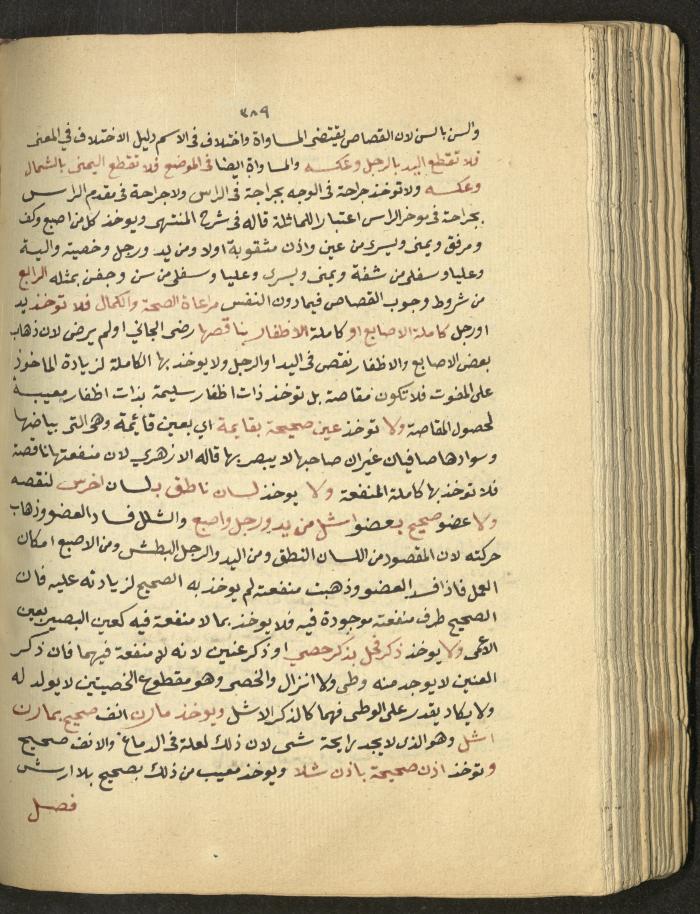 ٣٨٩
والسن بالسن لان القصاص يقتضى المساواة واختلاف فى الاسم دليل الاختلاف فى المعنى
فلا تقطع اليد بالرجل وعكسه والمساواة ايضا فى الموضع فلا تقطع اليمنى بالشمال
وعكسه ولا توخذ جراحة فى الوجه بجراحة فى الراس ولا جراحة فى مقدم الراس
بجراحة فى موخر الراس اعتبارا للماثلة قاله فى شرح المنتهى ويوخذ كل من اصبع وكف
ومرفق ويمنى ويسرى من عين واذن مثقوبة اولا ومن يد ورجل وخصية والية
وعليا وسفلى من شفة ويمنى ويسرى وعليا وسفلى من سن وجفن بمثله الرابع
من شروط وجوب القصاص فيما دون النفس مراعاة الصحة والكمال فلا توخذ يد
او رجل كاملة الاصابع او كاملة الاظفار بناقصها رضى الجاني اولم يرض لان ذهاب
بعض الاصابع والاظفار نقص فى اليد او الرجل ولا يوخذ بها الكاملة لزيادة الماخوذ
على المفوت فلا تكون مقاصة بل توخذ ذات اظفار سليمة بذات اظفار معيبة
لحصول المقاصة ولا توخذ عين صحيحة بقايمة اي بعين قائمة وهى التى بياضها
وسوادها صافيان غير ان صاحبها لا يبصر بها قاله الازهري لان منفعتها ناقصة
فلا توخذ بها كاملة المنفعة ولا يوخذ لسان ناطق بلسان اخرس لنقصه
ولا عضو صحيح بعضو اشل من يد ورجل واصبع والشلل فساد العضو وذهاب
حركته لان المقصود من اللسان النطق ومن اليد والرجل البطش ومن الاصبع امكان
العمل فاذا فسد العضو وذهبت منفعته لم يوخذ به الصحيح لزيادته عليه فان
الصحيح طرف منفعته موجودة فيه فلا يوخذ بما لا منفعة فيه كعين البصير بعين
الاعمى ولا يوخذ ذكر فحل بذكر خصي او ذكر عنين لانه لا منفعة فيهما فان ذكر
العنين لا يوجد منه وطى ولا انزال والخصى وهو مقطوع الخصيتين لا يولد له
ولا يكاد يقدر على الوطى فهما كالذكر الاشل ويوخذ مارن انف صحيح بمارن
اشل وهو الذى لا يجد رايحة شى لان ذلك لعلة فى الدماغ والانف صحيح
وتوخذ اذن صحيحة باذن شلا ويوخذ معيب من ذلك بصحيح بلا ارش
فصل